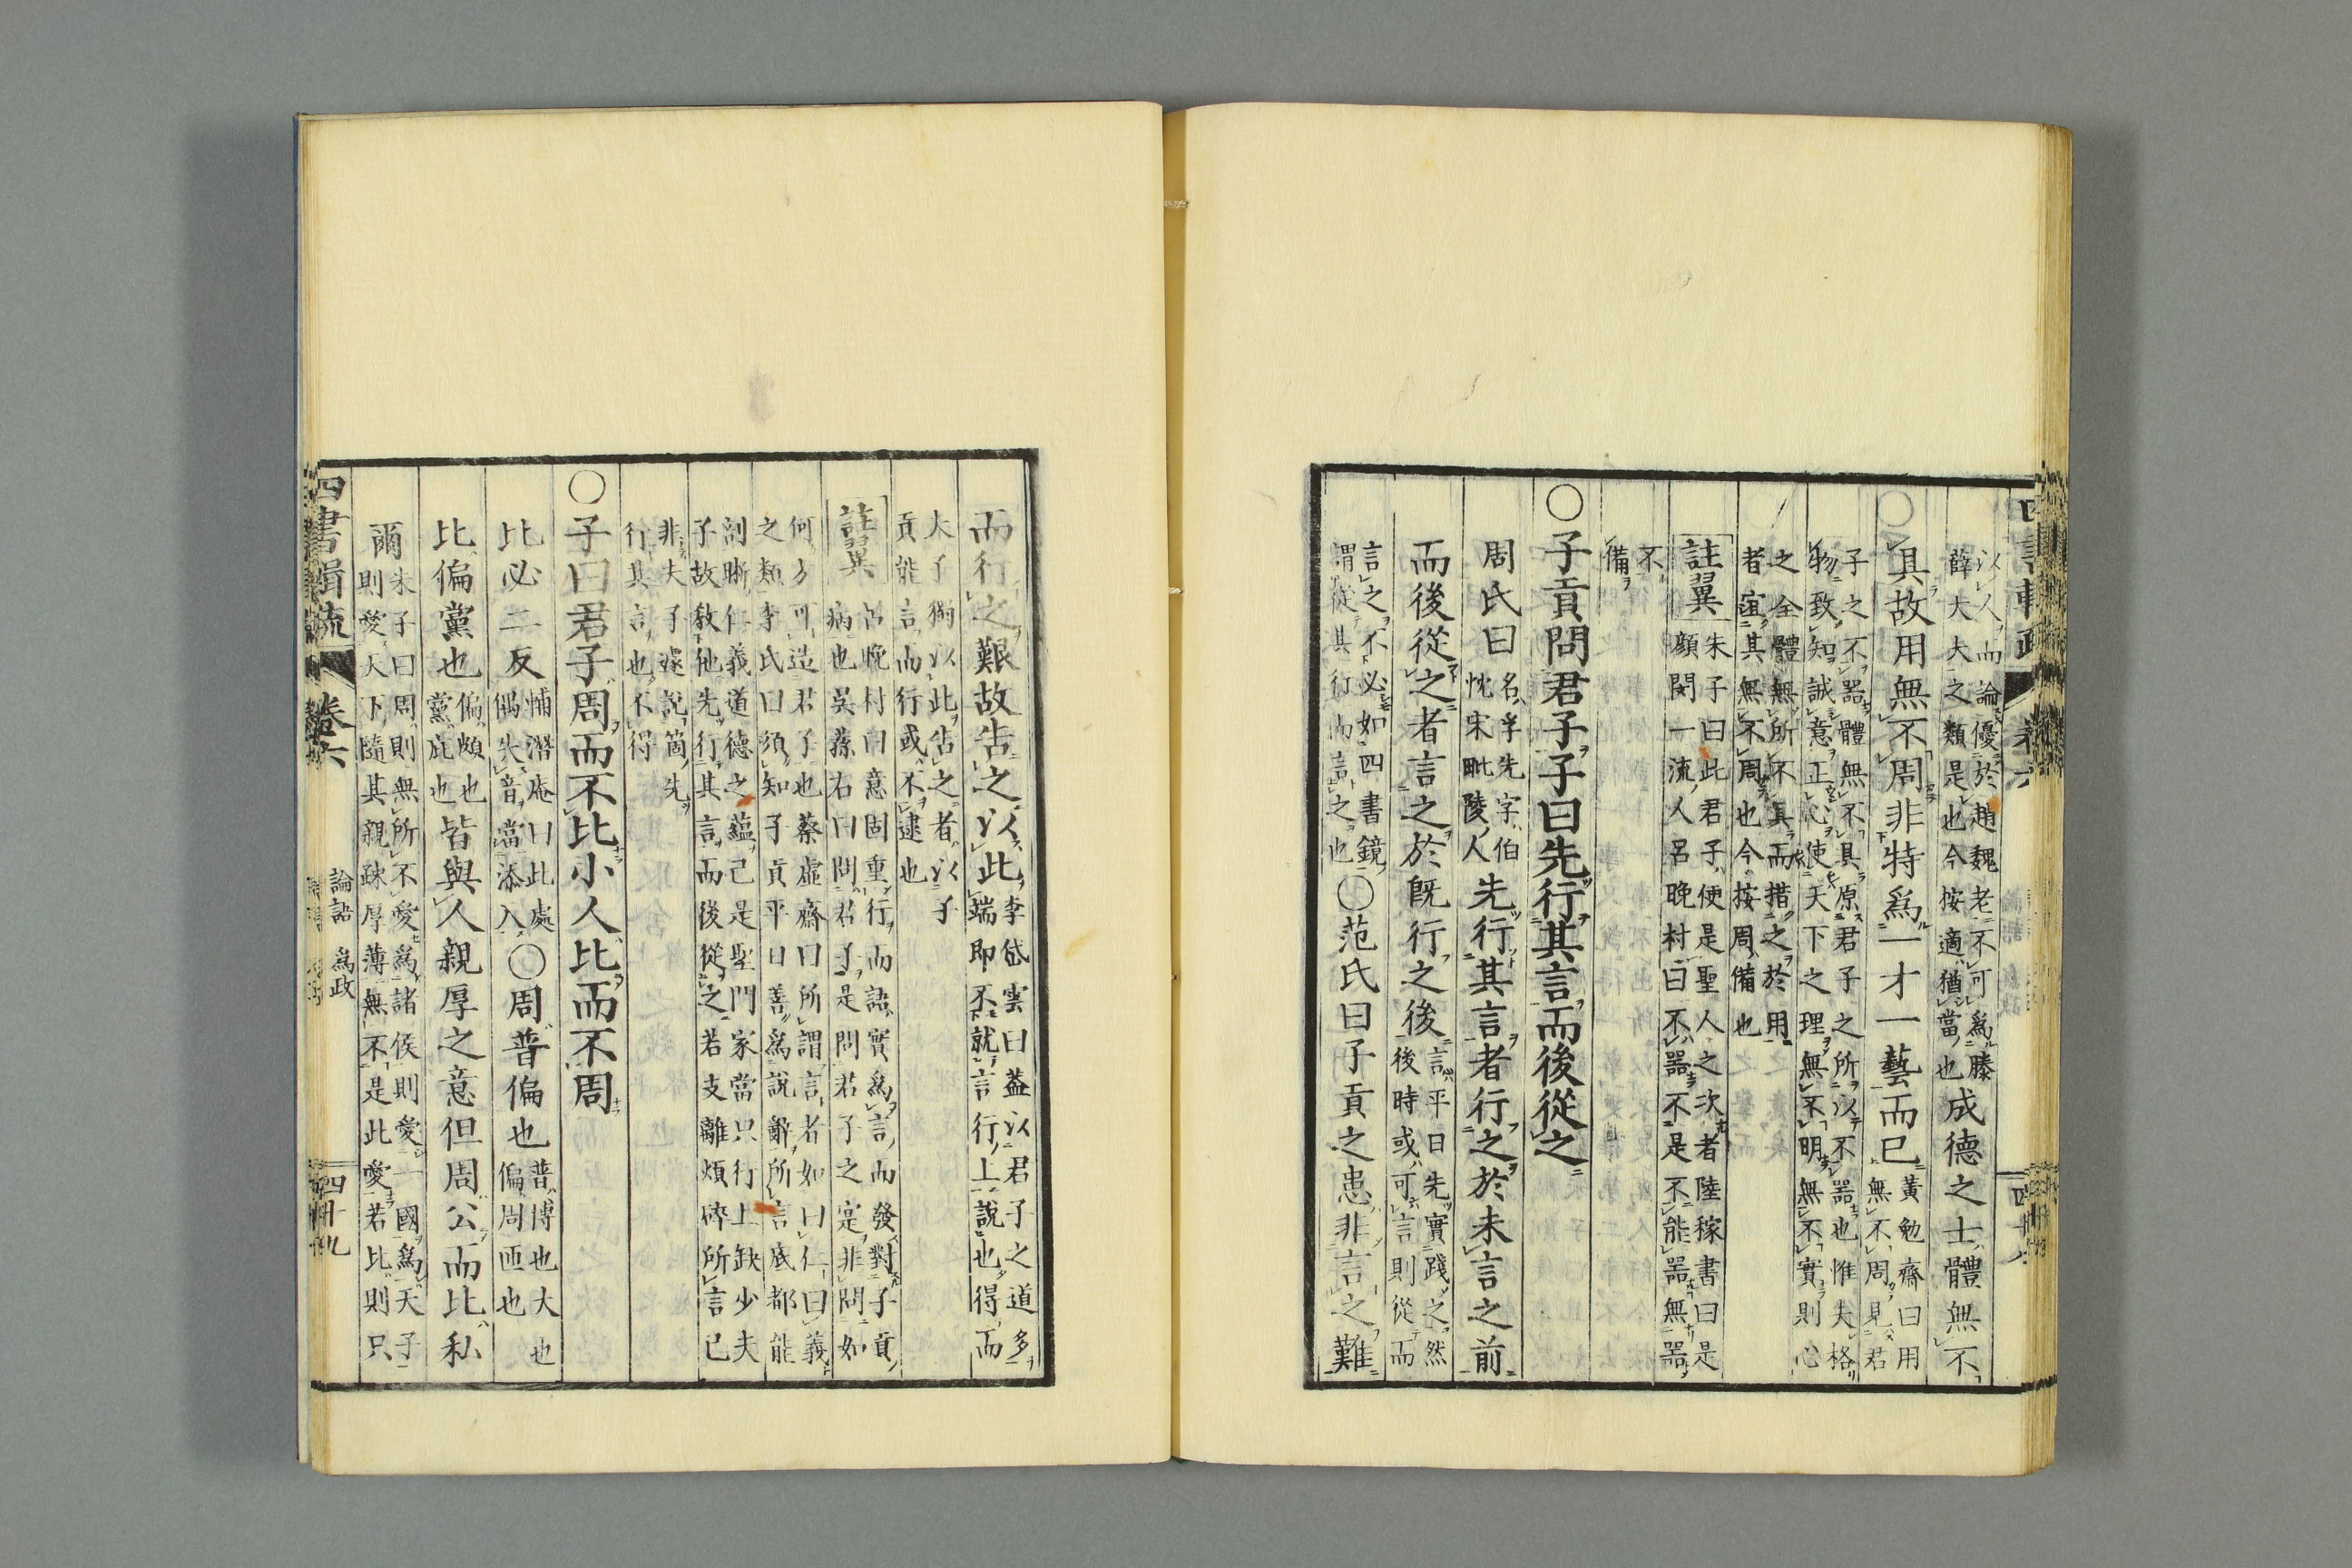 以人而論優於趙魏老不可爲滕
薛大夫之類是也今按適猶當也
成德之士體無不
具故用無不周非特爲一才一藝而已
黃勉齋曰用
無不周見君
子之不器體無不具原君子之所以不器也惟夫格
物致知誠意正心使天下之理無不明無不實則心
之全體無所不具而措之於用
者宜其無不周也今按周備也
註翼
朱子曰此君子便是聖人之次者陸稼書曰是
顏閔一流人呂晚村曰不器不是不能器無器
不
備
○子貢問君子子曰先行其言而後從之
周氏曰
名孚先字伯
忱宋毗陵人
先行其言者行之於未言之前
而後從之者言之於既行之後
言平日先實踐之然
後時或可言則從而
言之不必如四書鏡
謂從其行而言之也
○范氏曰子貢之患非言之難
而行之艱故告之以此
李岱雲曰蓋以君子之道多
端即不就言行上說也得而
夫子獨以此告之者以子
貢能言而行或不逮也
註翼
呂晚村曰意固重行而語實爲言而發對子貢
病也吳蓀右曰問君子是問君子之寔非問如
何方可造君子也蔡虛齋曰所謂言者如曰仁曰義
之類李氏曰須知子貢平日善爲說辭所言底都能
剖晰仁義道德之蘊已是聖門家當只行上缺少夫
子故敎他先行其言而後從之若支離煩碎所言已
非夫子遽說箇先
行其言也不得
○子曰君子周而不比小人比而不周
比必二反
輔潛庵曰此處
偶失音當添入
○周普偏也
普博也大也
偏周匝也
比偏黨也
偏頗也
黨庇也
皆與人親厚之意但周公而比私
爾
朱子曰周則無所不愛爲諸侯則愛一國爲天子
則愛天下隨其親疎厚薄無不是此愛若比則只
四書輯疏
卷六
論語
爲政
四十九